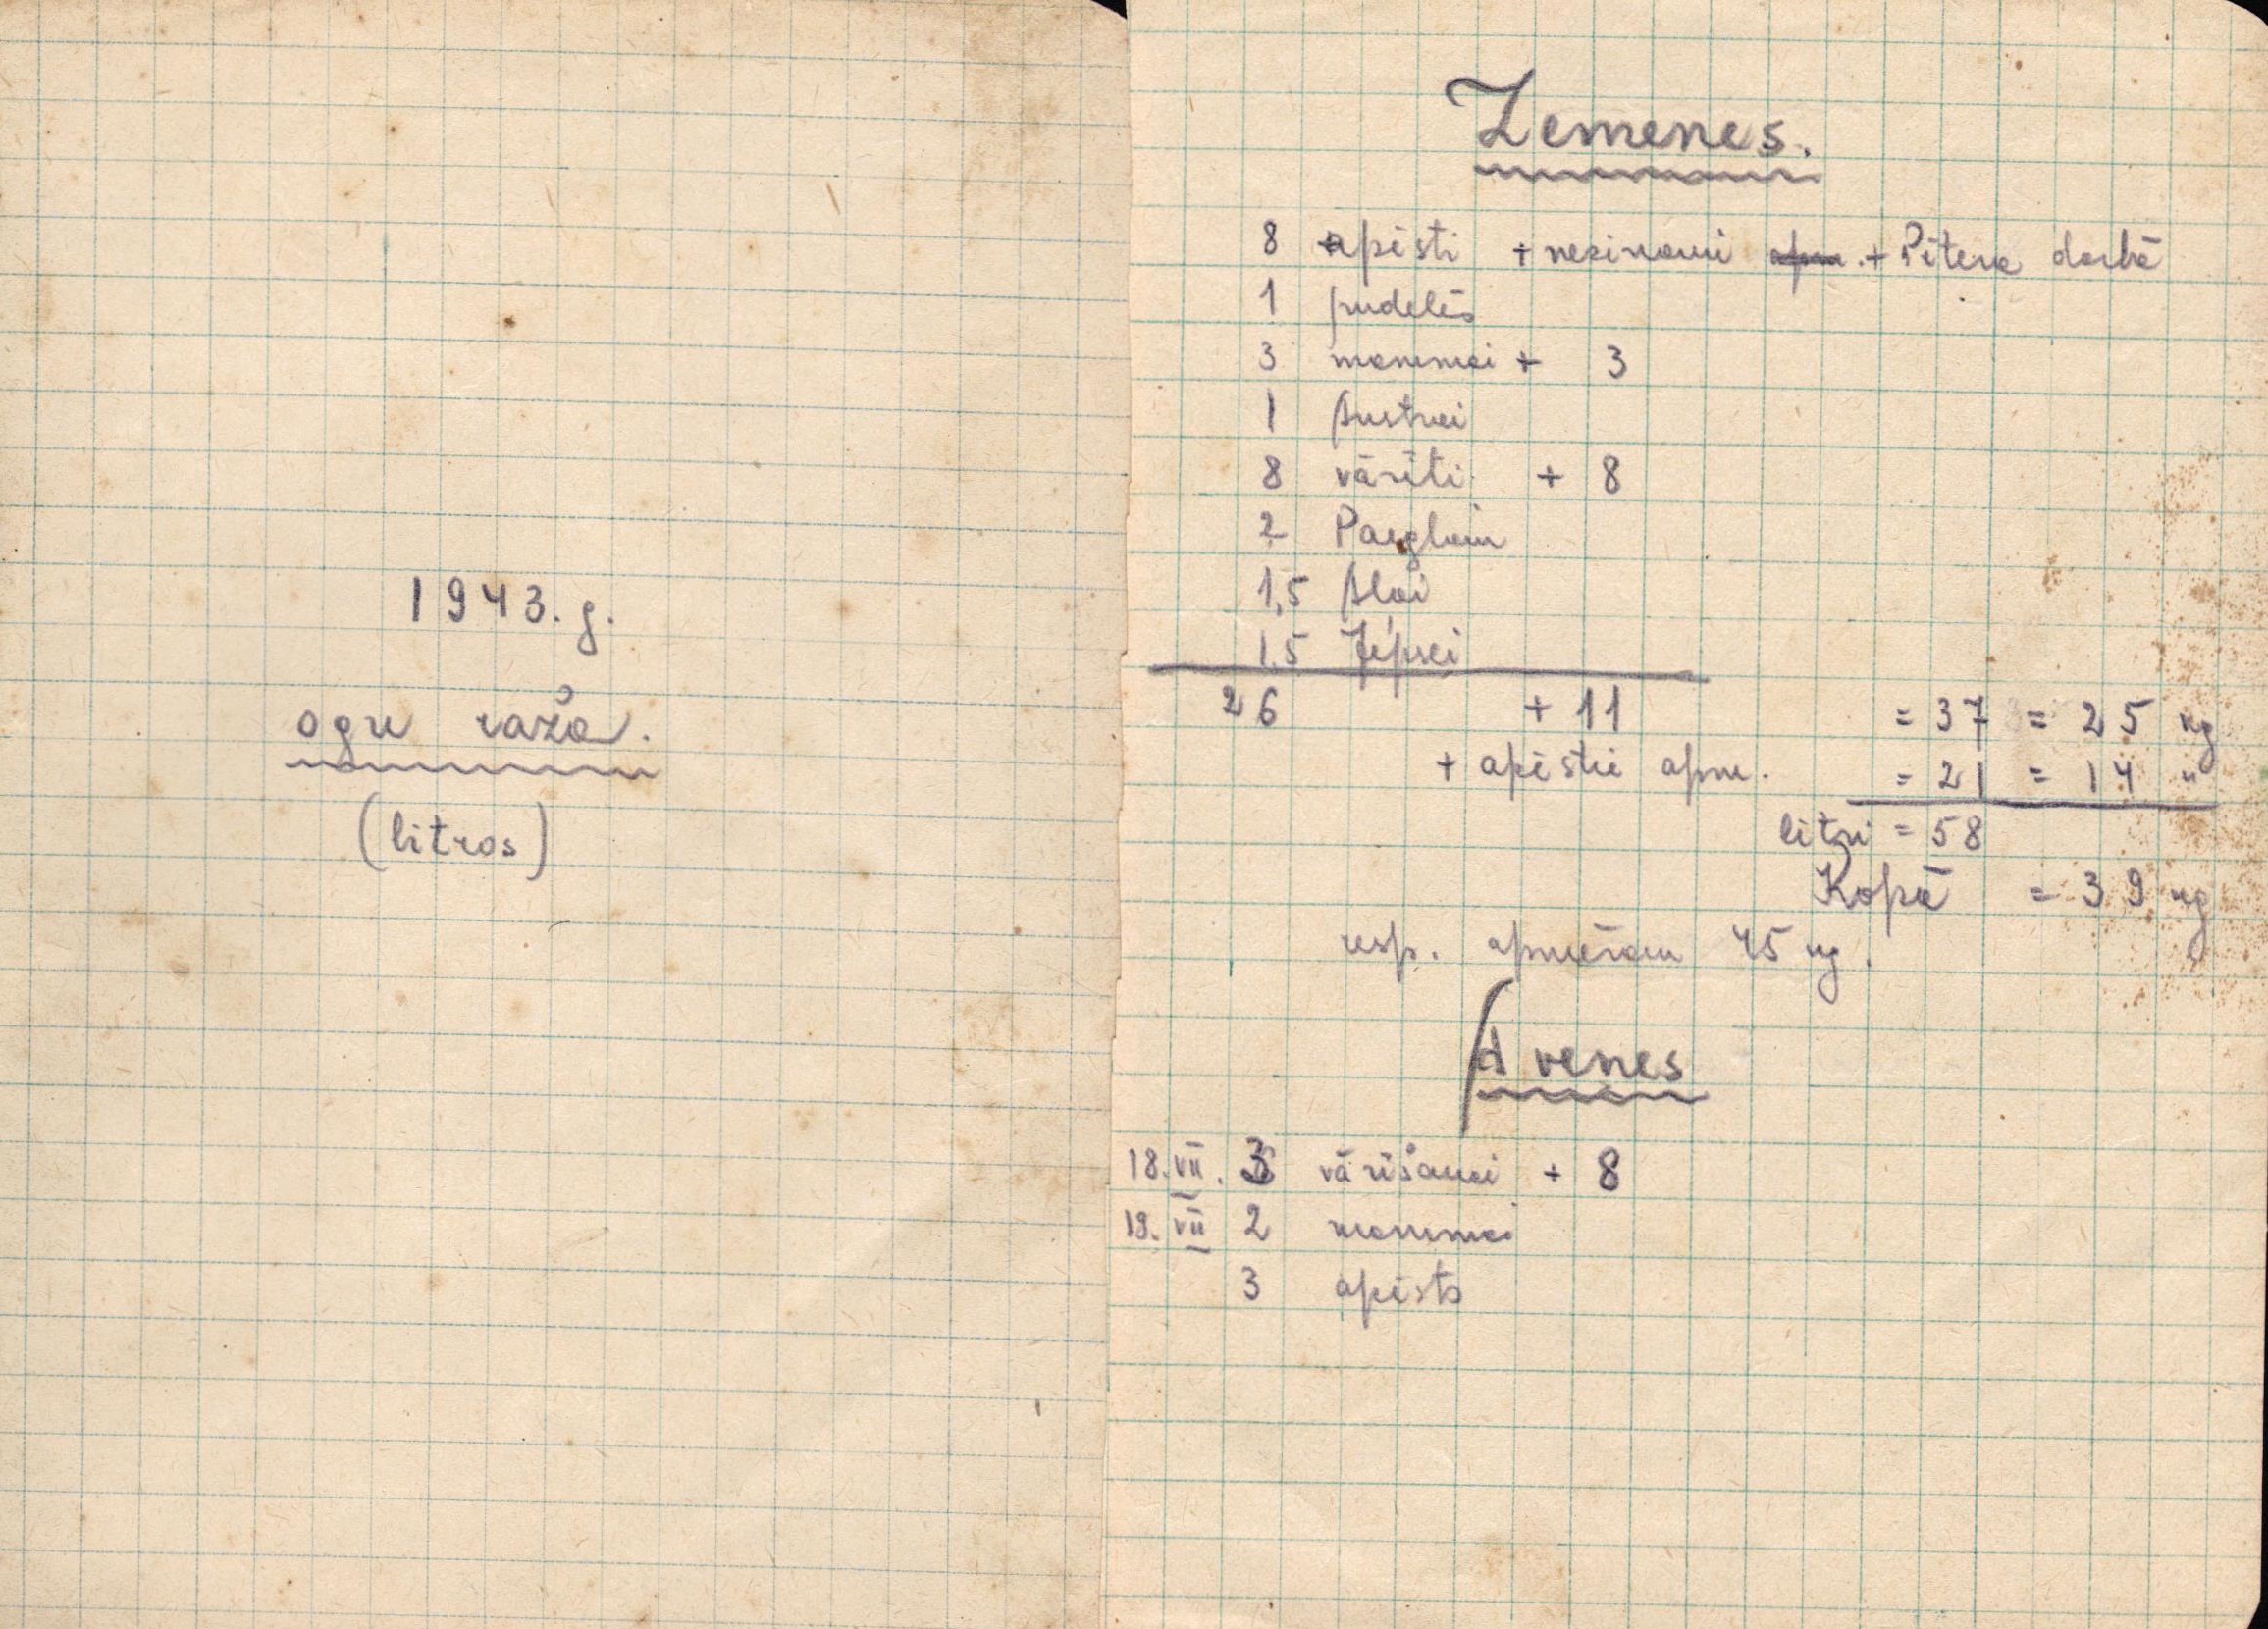 1943. g.
ogu raža.
(litros)
Zemenes.
8 apēsti + nezinami apm. + Pētera darbā
1 pudelēs
3 mammai + 3
1 Austrai
8 vārīti + 8
2 Paeglēm
1,5 Alai
1,5 Zepsei
26 + 11 = 37 = 25 kg
+ apēstie apm. = 21 = 14 "
litri = 58
Kopā = 39 kg
resp. apmēram 45 kg.
Avenes
18. VII. 3 vārīšanai + 8
19. VII 2 mammai
3 apēsts